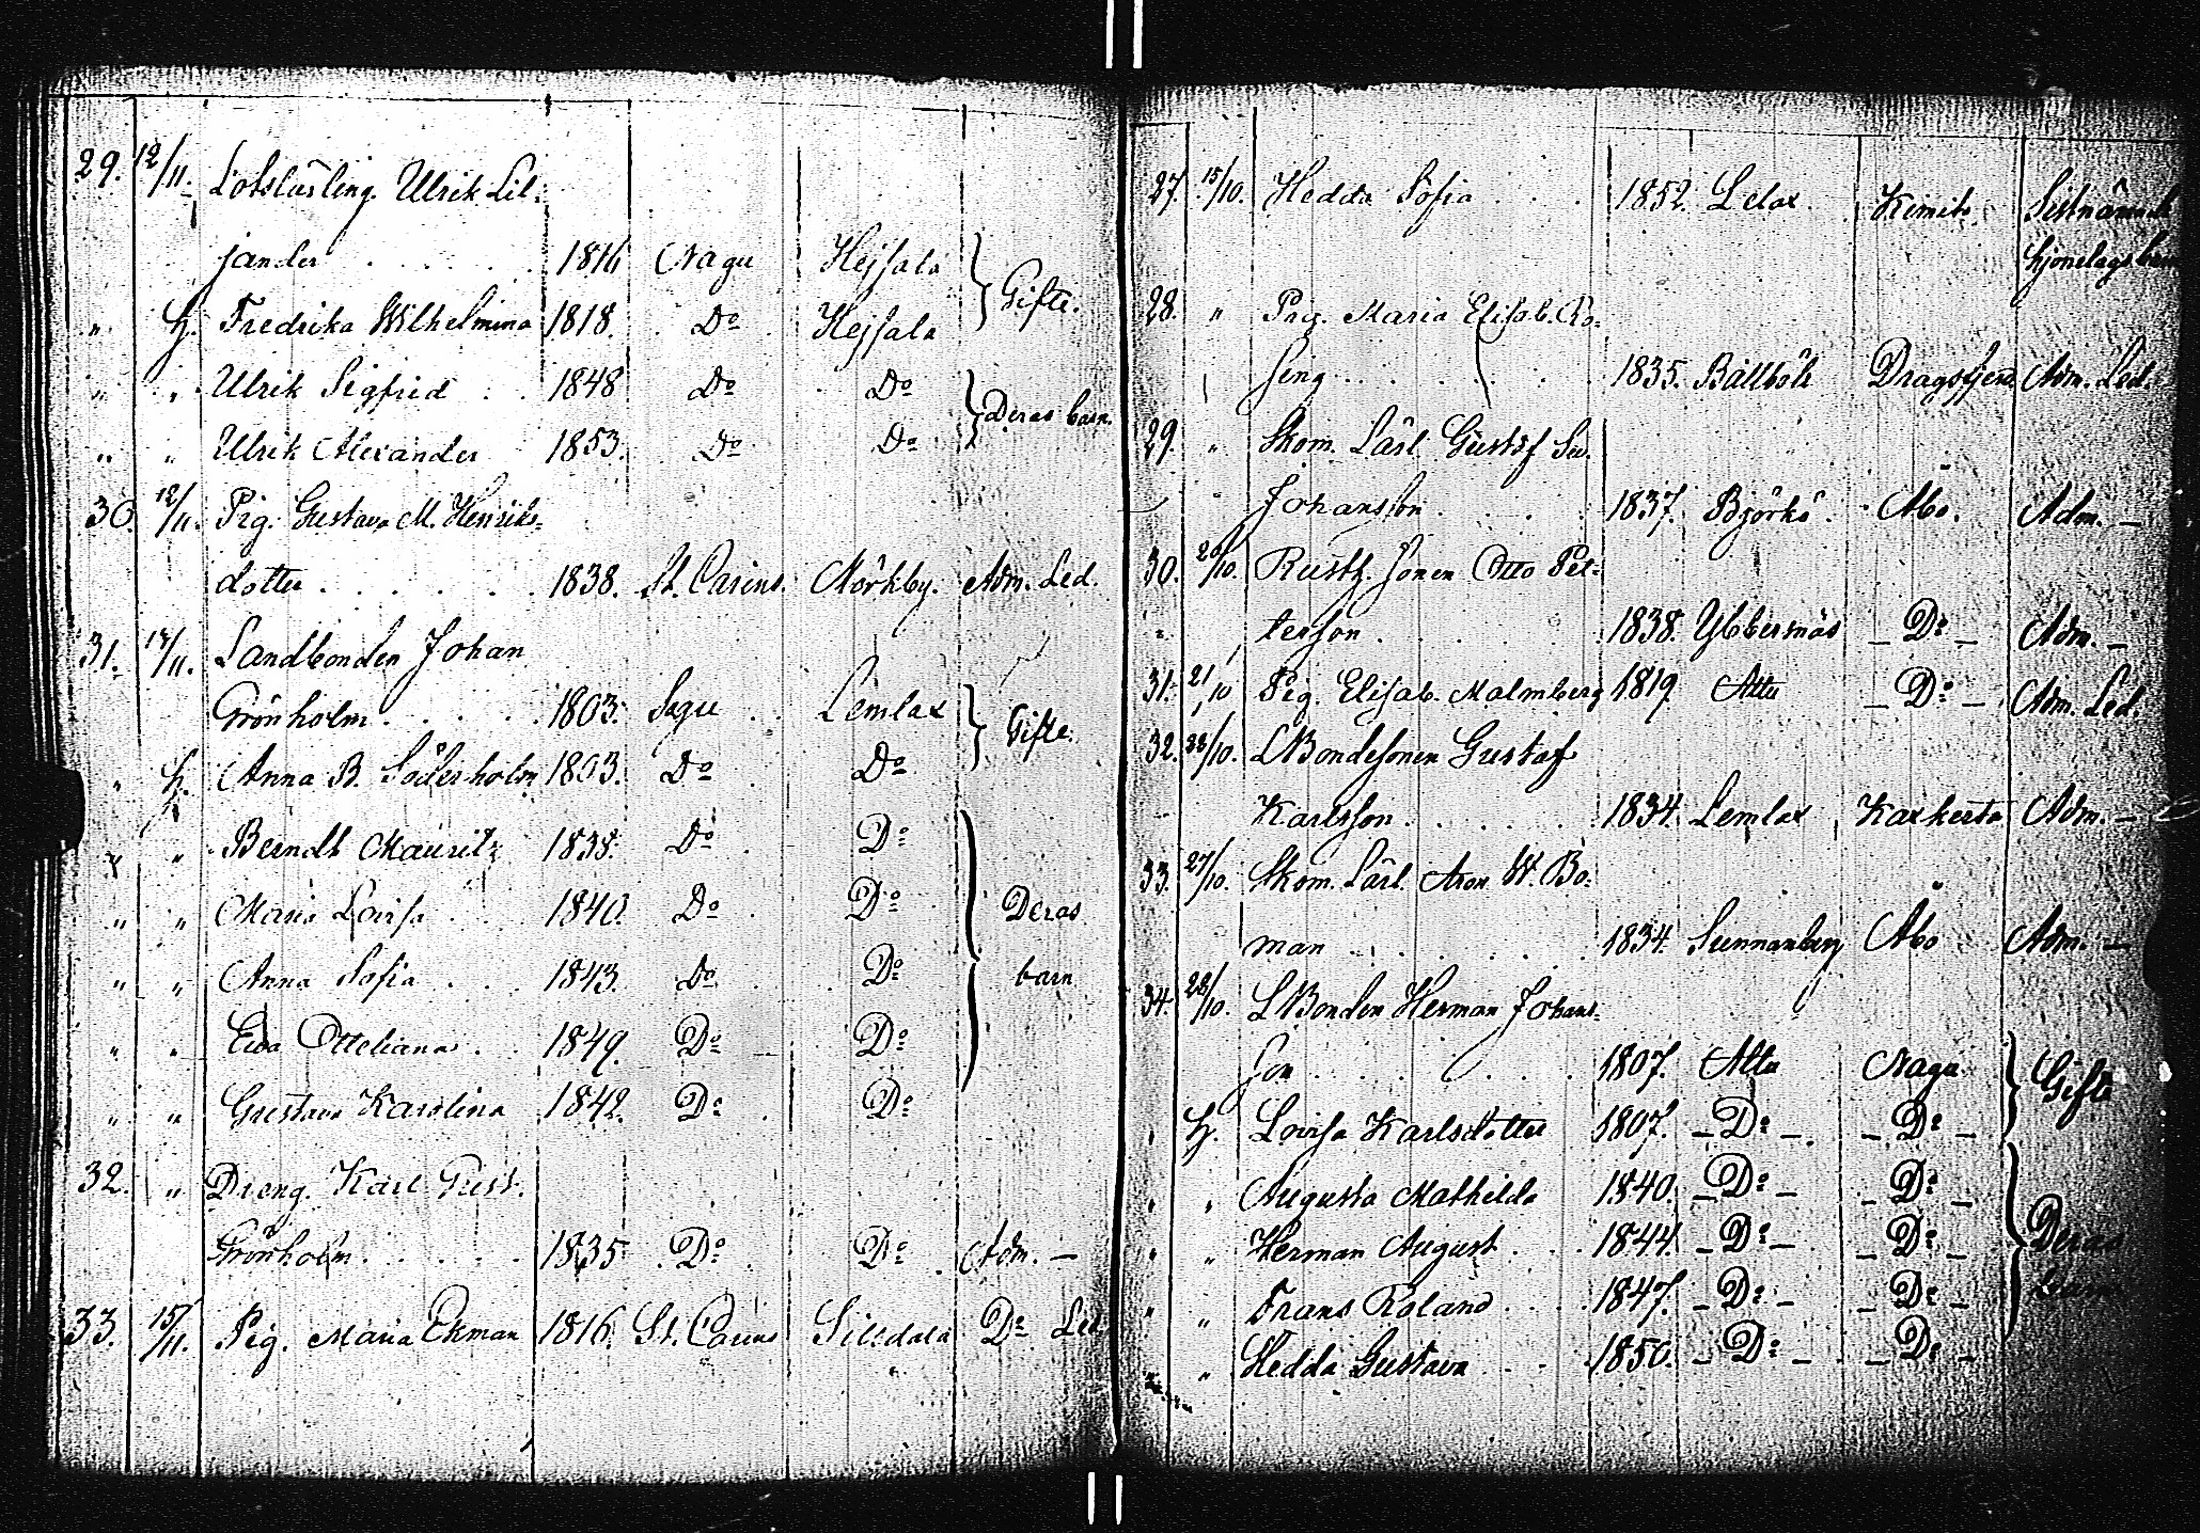 29. 12/11. Lotslärling. Ulrik Lil-
jander . . . . . 1816 Nagu Hejsala
" H. Fredrika Wilhelmina 1818. Do Hejsala Gifte.
" " Ulrik Sigfrid . . 1848 Do Do
" " Ulrik Alexander 1853. Do Do Deras barn.
30. 12/11. Pig. Gustava M. Henriks-
dotter . . . . . . 1838. St. Carins. Mörkby. Adm. Led.
31. 14/11. Landbonden Johan
Grönholm . . . . . 1803. Sagu Lemlax Gifte.
" H. Anna B. Söderholm 1803. Do Do
" " Berndt Mauritz 1838. Do Do
" " Maria Lovisa . . 1840. Do Do Deras
" " Anna Sofia . . . 1843. Do Do barn
" " Eva Otteliana . . 1849. Do Do
" " Gustava Karolina 1842. Do Do
32. " Dreng. Karl Gust.
Grönholm . . . . . 1835. Do Do Adm. —
33. 15/11. Pig. Maria Ekman 1816. St. Carins Do Led.
27. 15/10. Hedda Sofia . . . 1852. Lelax Kimito Sistnämnde
hjonelags barn
28. " Pig. Maria Elisab. Ro-
sing . . . . . . . 1835. Ballbole Dragsfjerd Adm. Led.
29. " Skom. Lärl. Gustaf
Johansson . . . . 1837. Björkö. Åbo. Adm. —
30. 20/10. Rusth. Sonen Otto Pet-
terson . . . . . . 1838. Ybbersnäs — Do — Adm. —
31. 21/10 Pig. Elisab. Malmberg 1819. Attu — Do — Adm. Led.
32. 22/10. LBondesonen Gustaf
Karlsson . . . . . . 1834. Lemlax Karkerta Adm. —
33. 27/10. Skom. Lärl. Aron W. Bo-
man . . . . . . . 1834. Sunnanberg Åbo Adm. —
34. 28/10. LBonden Herman Johans-
son . . . . . . . 1807. Attu Nagu Gifte
" H. Lovisa Karlsdotter 1807. — Do — — Do —
" " Augusta Mathilda 1840. — Do — — Do —
" " Herman August . . . 1844. — Do — — Do — Deras
" " Frans Roland . . . . 1847. — Do — — Do — barn
" " Hedda Gustava . . . 1850. — Do — — Do —